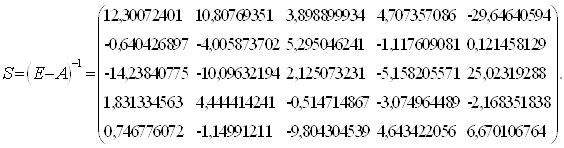 12,30072401 10,80769351 3,898899934 4,707357086 -29,64640594
-0,640426897 -4,005873702 5,295046241 -1,117609081 0,121458129
S=(E-A)⁻¹= -14,23840775 -10,09632194 2,125073231 -5,158205571 25,02319288 .
1,831334563 4,444414241 -0,514714867 -3,074964489 -2,168351838
0,746776072 -1,14991211 -9,804304539 4,643422056 6,670106764